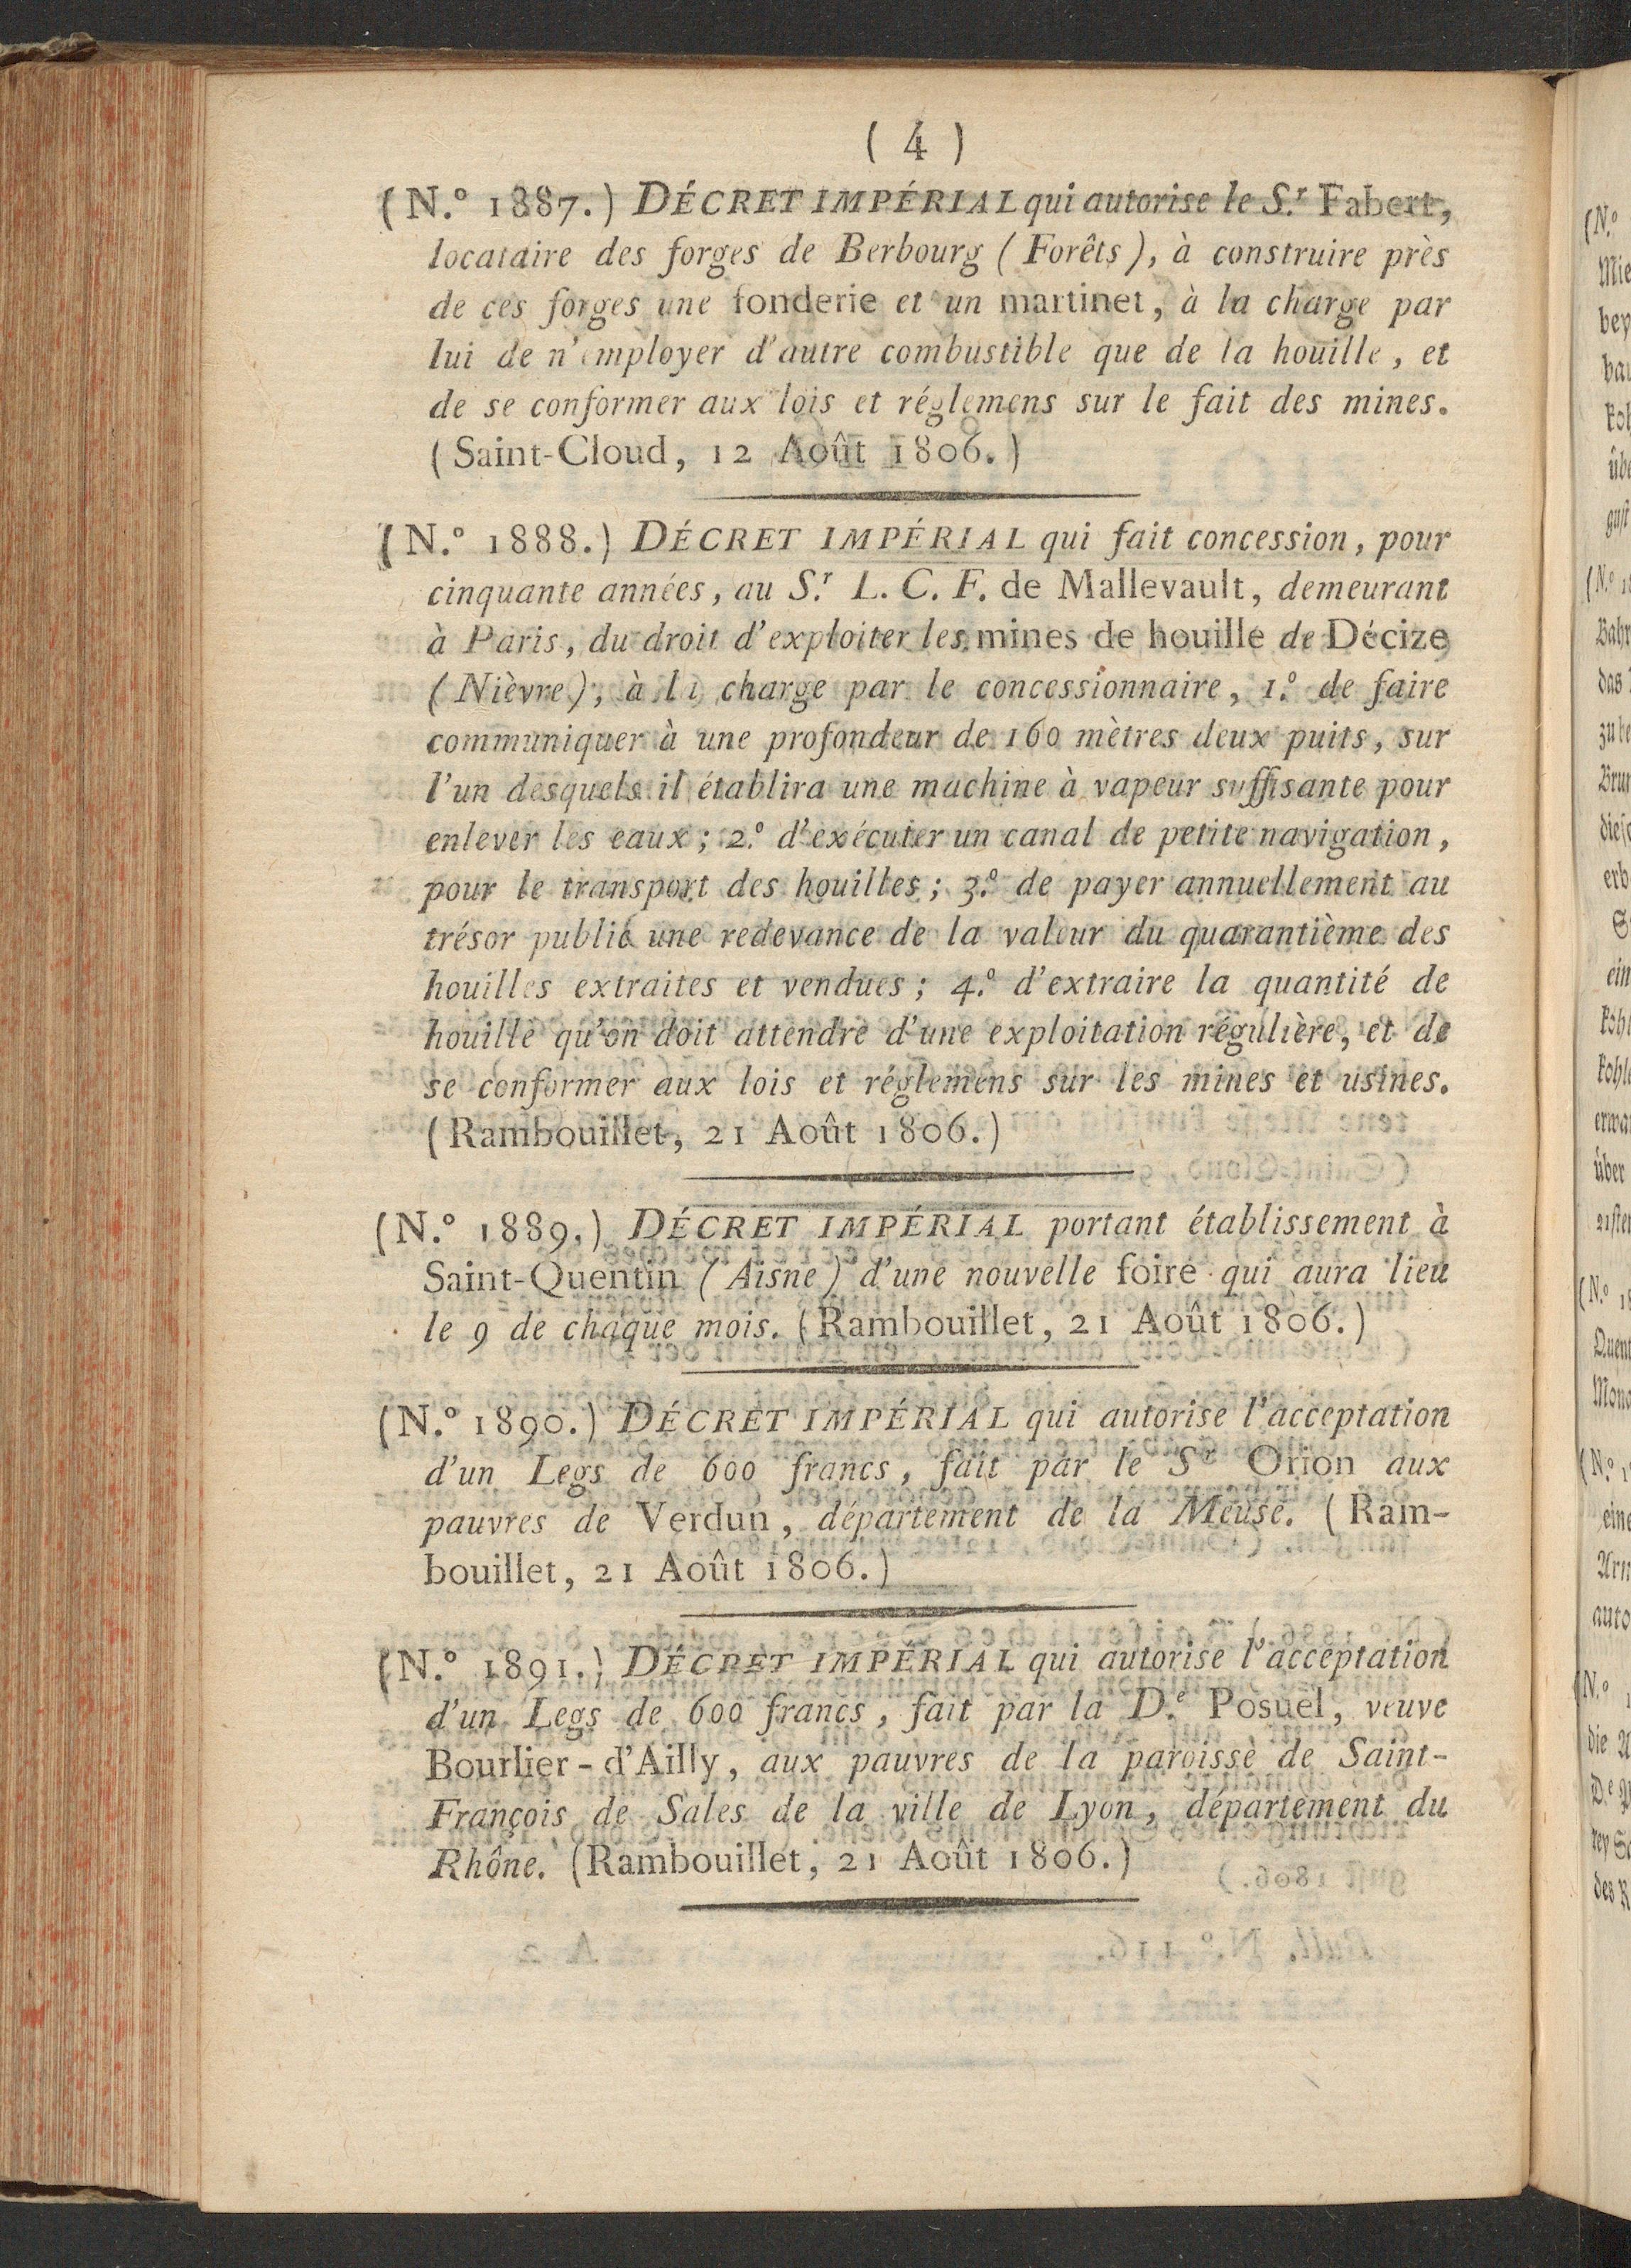 ( 4 )
(N.º 1887.) DÉCRET IMPÉRIAL qui autorise le S.r Fabert,
locataire des forges de Berbourg (Forêts), à construire près
de ces forges une fonderie et un martinet, à la charge par
lui de n'employer d'autre combustible que de la houille, et
de se conformer aux lois et réglemens sur le fait des mines.
(Saint-Cloud, 12 Août 1806.)
(N.º 1888.) DÉCRET IMPÉRIAL qui fait concession, pour
cinquante années, au S.r L. C. F. de Mallevault, demeurant
à Paris, du droit d'exploiter les mines de houille de Décize
(Nièvre), à la charge par le concessionnaire, 1.º de faire
communiquer à une profondeur de 160 mètres deux puits, sur
l'un desquels il établira une machine à vapeur suffisante pour
enlever les eaux; 2.º d'exécuter un canal de petite navigation,
pour le transport des houilles; 3.º de payer annuellement au
trésor public une redevance de la valeur du quarantième des
houilles extraites et vendues; 4.º d'extraire la quantité de
houille qu'on doit attendre d'une exploitation régulière, et de
se conformer aux lois et réglemens sur les mines et usines.
(Rambouillet, 21 Août 1806.)
(N.º 1889.) DÉCRET IMPÉRIAL portant établissement à
Saint-Quentin (Aisne) d'une nouvelle foire qui aura lieu
le 9 de chaque mois. (Rambouillet, 21 Août 1806.)
(N.º 1890.) DÉCRET IMPÉRIAL qui autorise l'acceptation
d'un Legs de 600 francs, fait par le S.r Orion aux
pauvres de Verdun, département de la Meuse. (Ram-
bouillet, 21 Août 1806.)
(N.º 1891.) DÉCRET IMPÉRIAL qui autorise l'acceptation
d'un Legs de 600 francs, fait par la D.e Posuel, veuve
Bourlier-d'Ailly, aux pauvres de la paroisse de Saint-
François de Sales de la ville de Lyon, département du
Rhône. (Rambouillet, 21 Août 1806.)